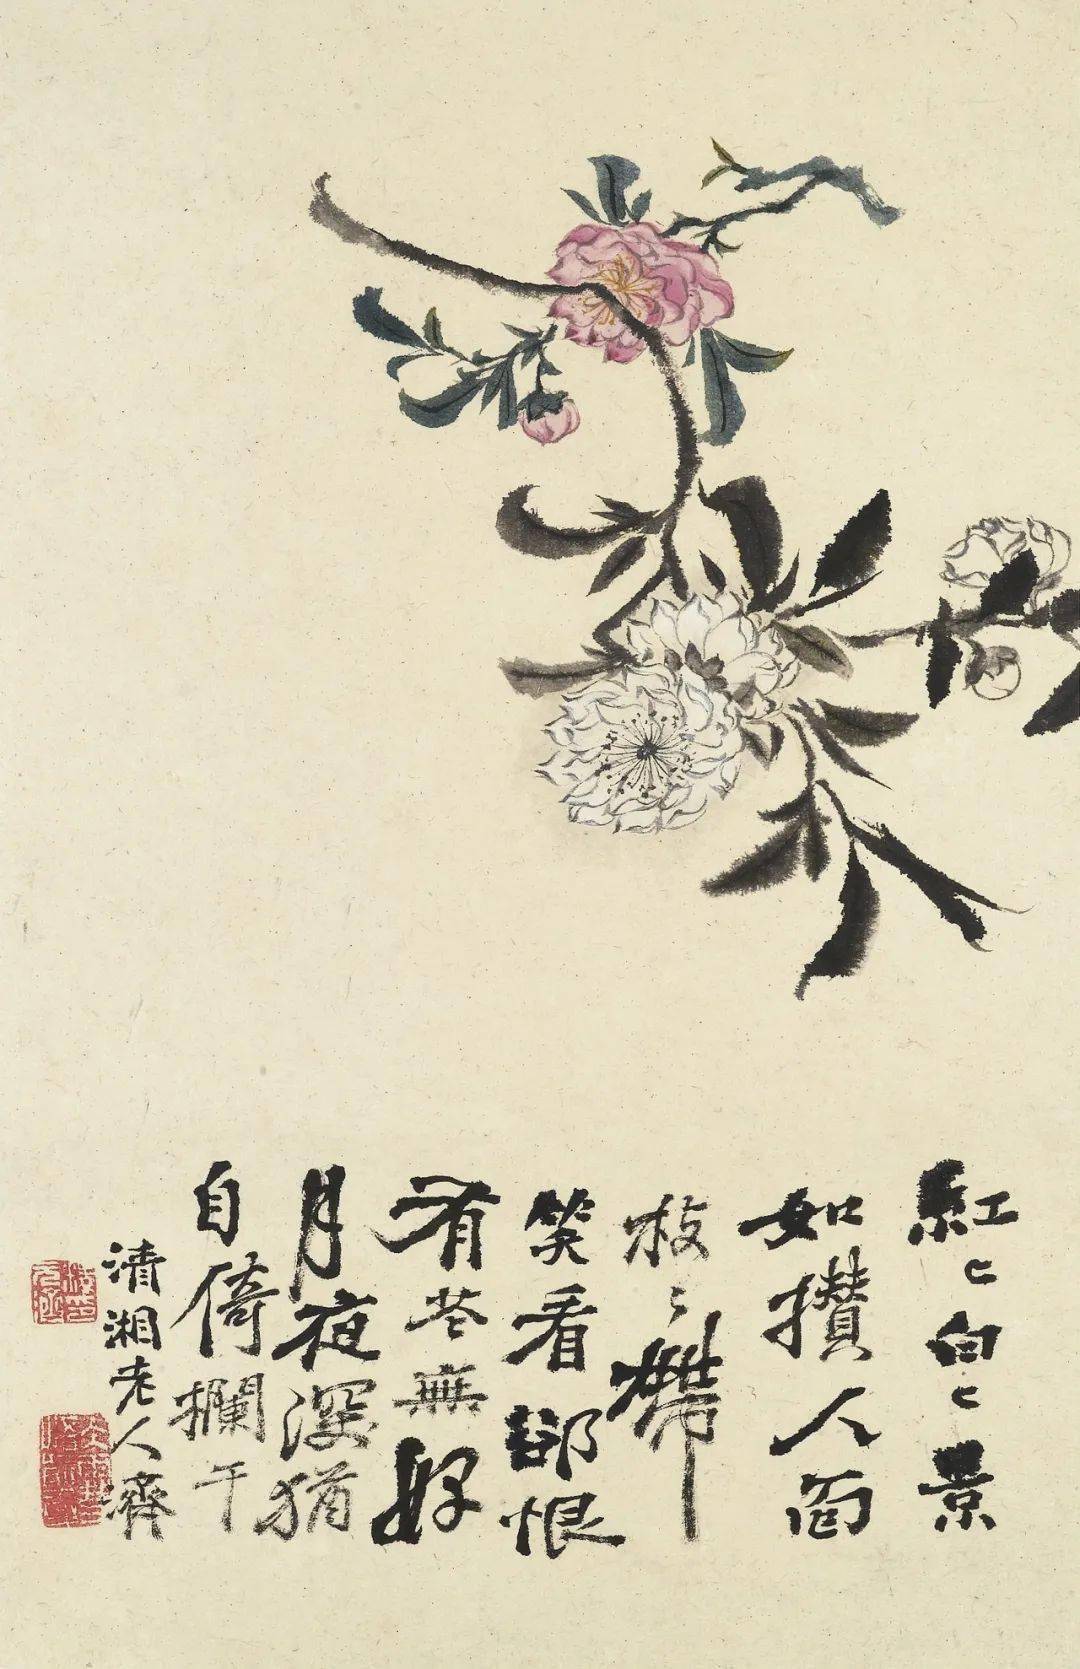 紅〻白〻景
如攢人面
枝〻帶
笑看卻恨
有花無好
月夜深猶
自倚欄干
清湘老人濟